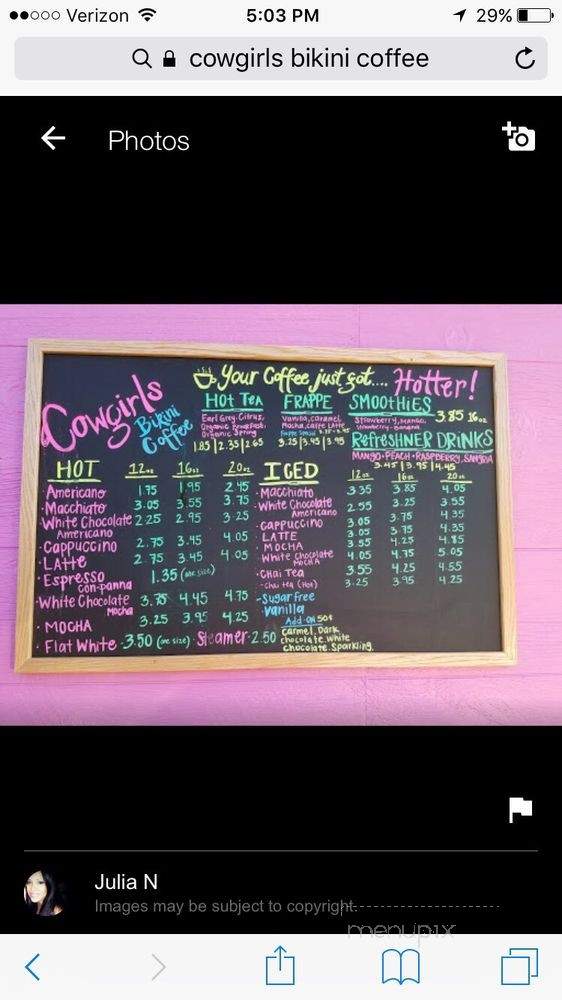 Verizon 5:03 PM 29%
cowgirls bikini coffee
Photos
Your Coffee just got.... Hotter!
Cowgirls
Bikini
Coffee
Hot Tea
Earl Grey, Citrus,
Organic Breakfast,
Organic Spring
1.85 | 2.35 | 2.65
FRAPPE
Vanilla, caramel
Mocha, Caffe Latte
3.25 | 3.45 | 3.95
SMOOTHIES
Strawberry, Mango,
Strawberry-Banana
3.85 16oz
RefresHNER DRINKS
MANGO-PEACH-RASPBERRY, SANGRIA
3.45 | 3.95 | 4.45
HOT 12oz 16oz 20oz
Americano 1.75 1.95 2.45
Macchiato 3.05 3.55 3.75
White Chocolate 2.25 2.95 3.25
Americano
Cappuccino 2.75 3.45 4.05
Latte 2.75 3.45 4.05
Espresso 1.35 (one size)
con-panna
White Chocolate 3.75 4.45 4.75
Mocha
MOCHA 3.25 3.95 4.25
Flat White 3.50 (one size) Steamer 2.50
ICED 12oz 16oz 20oz
Macchiato 3.35 3.85 4.05
White Chocolate 2.55 3.25 3.55
Americano
Cappuccino 3.05 3.75 4.35
LATTE 3.05 3.75 4.35
MOCHA 3.55 4.25 4.85
White Chocolate 4.05 4.75 5.05
MOCHA
CHAI Tea 3.55 4.25 4.55
Chai Tea (Hot) 3.25 3.95 4.25
-Sugar free
Vanilla
Add-on 50¢
Carmel, Dark
chocolate, white
chocolate, Sparkling.
Julia N
Images may be subject to copyright.
menupix